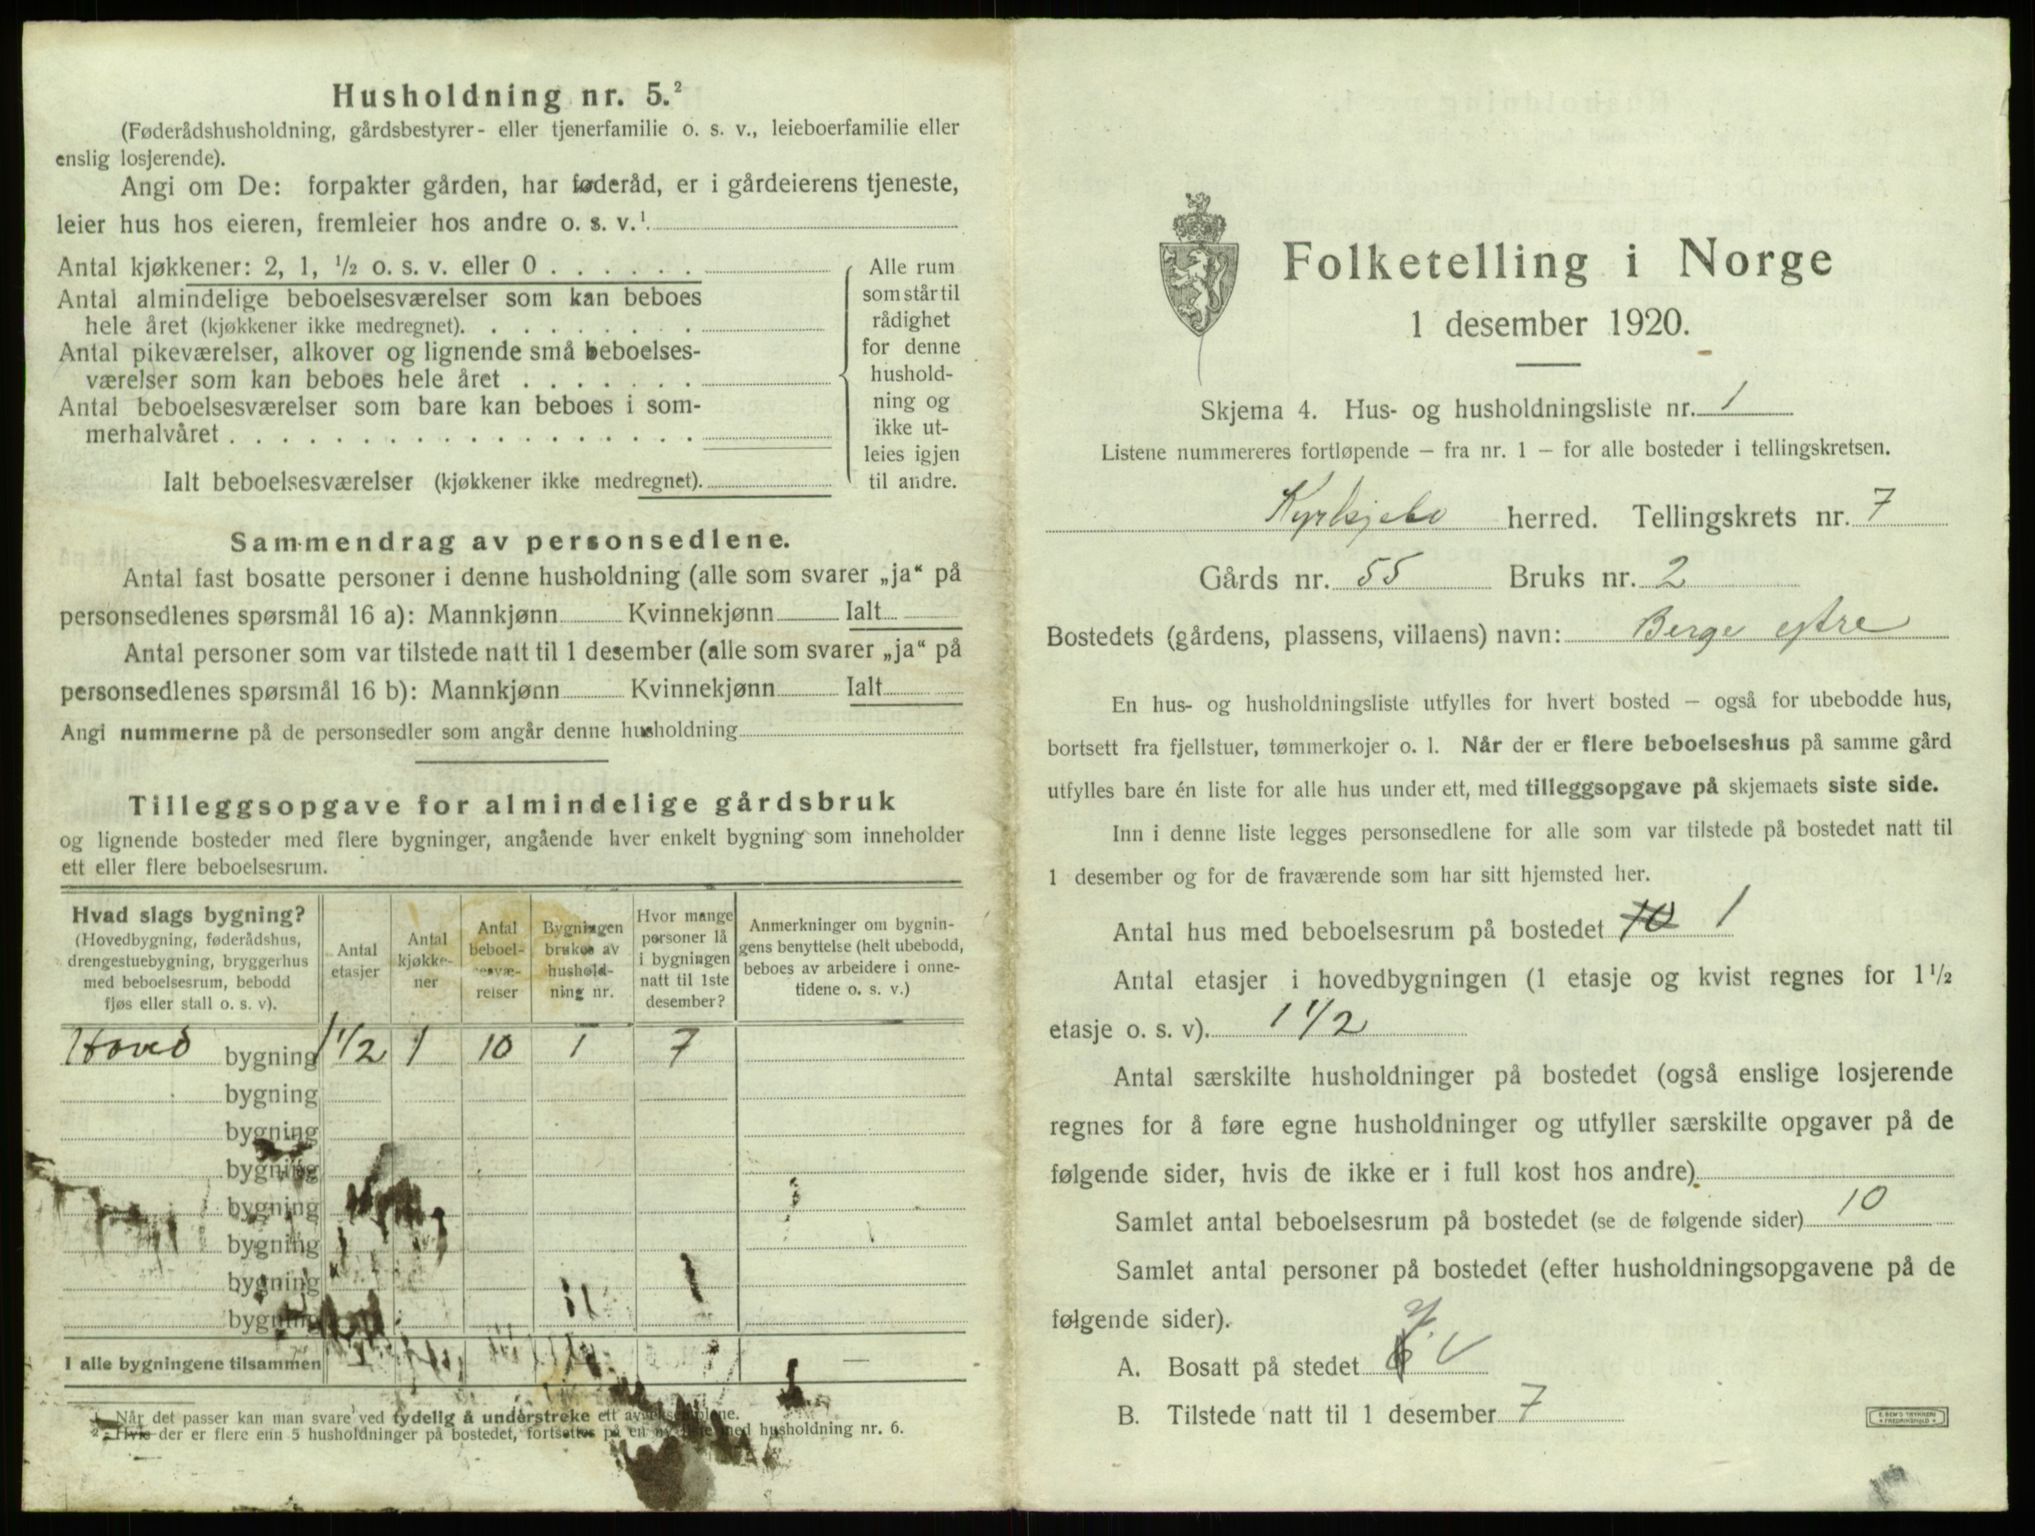 Husholdning nr. 5.²
(Føderådshusholdning, gårdsbestyrer- eller tjenerfamilie o. s. v., leieboerfamilie eller
enslig losjerende).
Angi om De: forpakter gården, har føderåd, er i gårdeierens tjeneste,
leier hus hos eieren, fremleier hos andre o. s. v.¹
Antal kjøkkener: 2, 1, ½ o. s. v. eller 0 . . . . . .
Antal almindelige beboelsesværelser som kan beboes
hele året (kjøkkener ikke medregnet). . . . . . . . .
Antal pikeværelser, alkover og lignende små beboelses-
værelser som kan beboes hele året . . . . . . .
Antal beboelsesværelser som bare kan beboes i som-
merhalvåret . . . . . . . . . . . . . . . . . .
Ialt beboelsesværelser (kjøkkener ikke medregnet).
Alle rum
som står til
rådighet
for denne
hushold-
ning og
ikke ut-
leies igjen
til andre.
Sammendrag av personsedlene.
Antal fast bosatte personer i denne husholdning (alle som svarer „ja“ på
personsedlenes spørsmål 16 a): Mannkjønn Kvinnekjønn Ialt
Antal personer som var tilstede natt til 1 desember (alle som svarer „ja“ på
personsedlenes spørsmål 16 b): Mannkjønn Kvinnekjønn Ialt
Angi nummerne på de personsedler som angår denne husholdning
Tilleggsopgave for almindelige gårdsbruk
og lignende bosteder med flere bygninger, angående hver enkelt bygning som inneholder
ett eller flere beboelsesrum.
Hvad slags bygning?
(Hovedbygning, føderådshus,
drengestuebygning, bryggerhus
med beboelsesrum, bebodd
fjøs eller stall o. s. v).
Antal
etasjer
Antal
kjøkke-
ner
Antal
beboel-
sesvæ-
relser
Bygningen
brukes av
hushold-
ning nr.
Hvor mange
personer lå
i bygningen
natt til 1ste
desember?
Anmerkninger om bygnin-
gens benyttelse (helt ubebodd,
beboes av arbeidere i onne-
tidene o. s. v.)
Hoved bygning 1 1/2 1 10 1 7
bygning
bygning
bygning
bygning
bygning
bygning
bygning
I alle bygningene tilsammen — —
¹ Når det passer kan man svare ved tydelig å understreke ett av eksemplene.
² Hvis der er flere enn 5 husholdninger på bostedet, fortsettes på en ny liste med husholdning nr. 6.
Folketelling i Norge
1 desember 1920.
Skjema 4. Hus- og husholdningsliste nr. 1
Listene nummereres fortløpende – fra nr. 1 – for alle bosteder i tellingskretsen.
Kyrkjebo herred. Tellingskrets nr. 7
Gårds nr. 55 Bruks nr. 2
Bostedets (gårdens, plassens, villaens) navn: Berge ytre
En hus- og husholdningsliste utfylles for hvert bosted – også for ubebodde hus,
bortsett fra fjellstuer, tømmerkojer o. l. Når der er flere beboelseshus på samme gård
utfylles bare én liste for alle hus under ett, med tilleggsopgave på skjemaets siste side.
Inn i denne liste legges personsedlene for alle som var tilstede på bostedet natt til
1 desember og for de fraværende som har sitt hjemsted her.
Antal hus med beboelsesrum på bostedet 10 1
Antal etasjer i hovedbygningen (1 etasje og kvist regnes for 1 1/2
etasje o. s. v). 1 1/2
Antal særskilte husholdninger på bostedet (også enslige losjerende
regnes for å føre egne husholdninger og utfyller særskilte opgaver på de
følgende sider, hvis de ikke er i full kost hos andre)
Samlet antal beboelsesrum på bostedet (se de følgende sider) 10
Samlet antal personer på bostedet (efter husholdningsopgavene på de
følgende sider).
A. Bosatt på stedet 7.
B. Tilstede natt til 1 desember 7